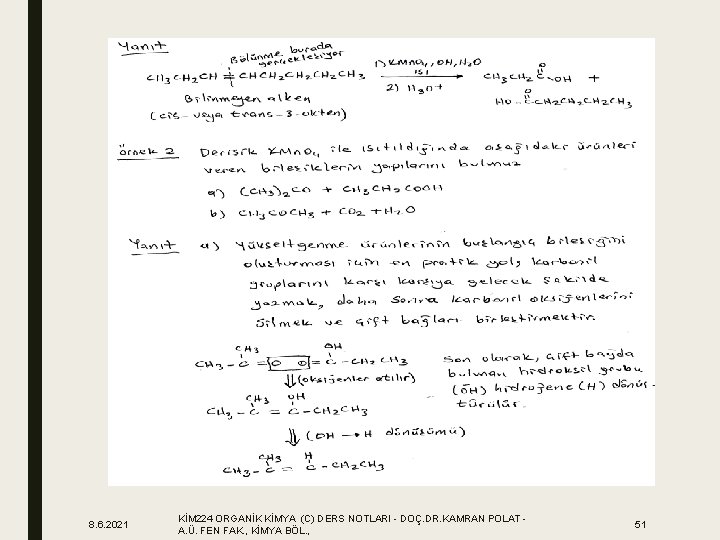 Yanıt
Bölünme burada
gerçekleşiyor
CH3CH2CH = CHCH2CH2CH2CH3
1) KMnO4, OH, H2O
ısı
2) H3O+
CH3CH2C-OH +
O
O
HO-CCH2CH2CH2CH3
Bilinmeyen alken
(cis- veya trans-3-okten)
Örnek 2 Derişik KMnO4 ile ısıtıldığında aşağıdaki ürünleri
veren bileşiklerin yapılarını bulunuz
a) (CH3)2CO + CH3CH2COOH
b) CH3COCH3 + CO2 + H2O
Yanıt a) Yükseltgenme ürünlerinin başlangıç bileşiğini
oluşturması için en pratik yol, karbonil
gruplarını karşı karşıya gelecek şekilde
yazmak, daha sonra karbonil oksijenlerini
silmek ve çift bağları birleştirmektir.
CH3 OH
CH3-C=O O=C-CH2CH3
(oksijenler atılır)
CH3 OH
CH3-C = C-CH2CH3
(OH → H dönüşümü)
CH3 H
CH3-C = C-CH2CH3
Son olarak, çift bağda
bulunan hidroksil grubu
(OH) hidrojene (H) dönüş-
türülür.
8.6.2021
KİM224 ORGANİK KİMYA (C) DERS NOTLARI - DOÇ.DR.KAMRAN POLAT -
A.Ü. FEN FAK., KİMYA BÖL.,
51